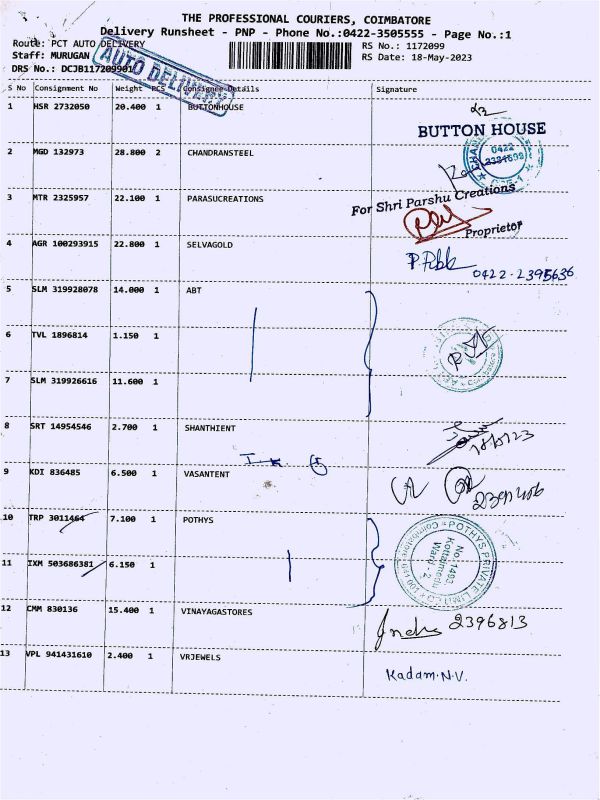 THE PROFESSIONAL COURIERS, COIMBATORE
Delivery Runsheet - PNP - Phone No.:0422-3505555 - Page No.:1
Route: PCT AUTO DELIVERY RS No.: 1172099
Staff: MURUGAN RS Date: 18-May-2023
DRS No.: DCJB117209901
AUTO DELIVERY
S No Consignment No Weight PCS Consignee Details Signature
1 HSR 2732050 20.400 1 BUTTONHOUSE
BUTTON HOUSE
0422
2 MGD 132973 28.800 2 CHANDRANSTEEL
3 MTR 2325957 22.100 1 PARASUCREATIONS
For Shri Parshu Creations
Proprietor
4 AGR 100293915 22.800 1 SELVAGOLD
0422-2395636
5 SLM 319928078 14.000 1 ABT
6 TVL 1896814 1.150 1
7 SLM 319926616 11.600 1
8 SRT 14954546 2.700 1 SHANTHIENT
9 KDI 836485 6.500 1 VASANTENT
10 TRP 3011464 7.100 1 POTHYS
POTHYS PRIVATE LIMITED
No: 1493
Ward - 2
Coimbatore
11 IXM 503686381 6.150 1
12 CMM 830136 15.400 1 VINAYAGASTORES
2396813
13 VPL 941431610 2.400 1 VRJEWELS
Kadam.N.V.